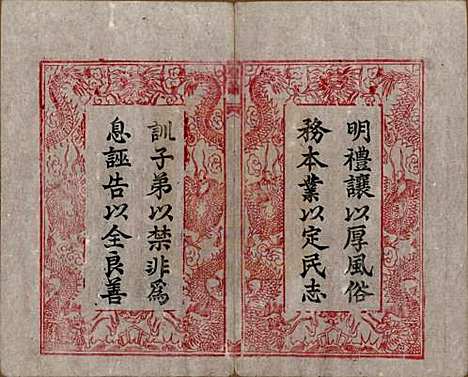 明禮讓以厚風俗
務本業以定民志
訓子弟以禁非為
息誣告以全良善